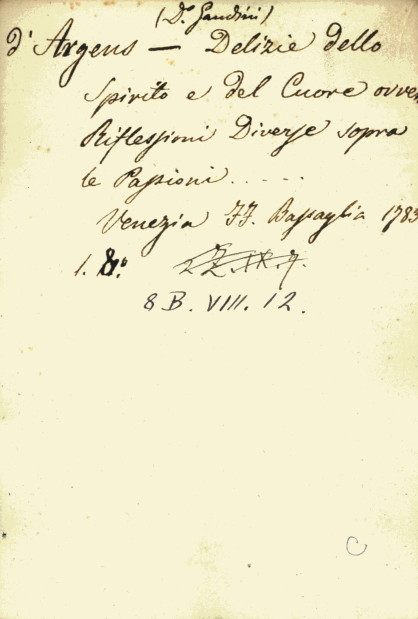 (Dr. Gandini)
d'Argens — Delizie dello
Spirito e del Cuore ovver
Riflessioni Diverse sopra
le Passioni . . . . .
Venezia FF. Bassaglia 1783
1. 8.°
8 B. VIII. 12.
C